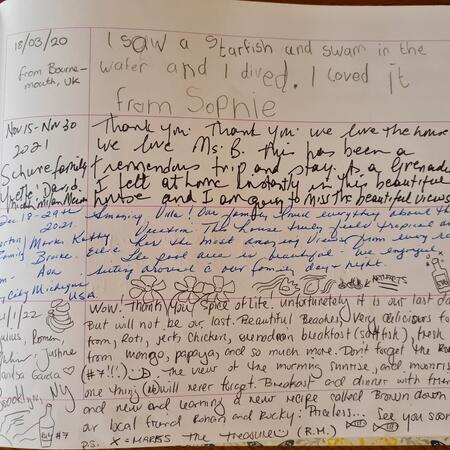 18/03/20
from Bourne-
mouth, UK
I saw a starfish and swam in the
water and I dived. I loved it
from Sophie
Nov 15 - Nov 30
2021
Schure family
Thank you. Thank you. We love the house
we love Ms. B. This has been a
tremendous trip and stay. As a Grenad
I felt at home instantly in this beautiful
house and I am going to miss the beautiful views
Dec 18-29th
2021.
Family
City Michigan
USA.
Amazing Villa! Our family loved everything about the
The house truly feels tropical an
has the most amazing views from every ro
The pool area is beautiful - we enjoyed
sitting around a our family days night.
1/22
Romen,
Justine
Garcia
Brooklyn, NY
Wow! Thank you Spice of Life. Unfortunately it is our last da
But will not be our last. Beautiful Beaches, very delicious fo
from, Roti, jerk chicken, Grenadian breakfast (saltfish), fresh
from mango, papaya, and so much more. Don't forget the Ru
(#7!!) :D. The view of the morning sunrise, and moonris
one thing (we) will never forget. Breakfast and dinner with frien
and new and learning a new recipe called Brown down
our local friend Ronan and Rocky: Priceless... See you soon
P.S. X = MARKS THE TREASURE (R.M.)
Rum
#7